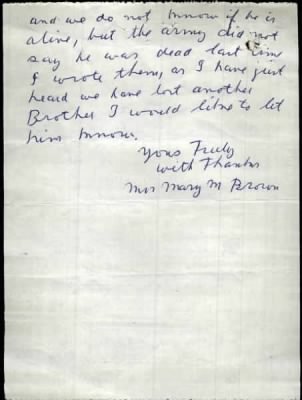 and we do not know if he is
alive, but the army did not
say he was dead last time
I wrote them, as I have just
heard we have lost another
Brother I would like to let
him know.
Yons Truly
with Thanks
Mrs Mary M Brown